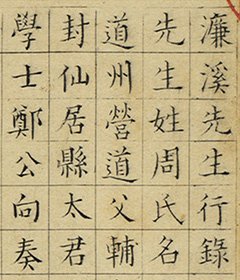 濂溪先生行錄
先生姓周氏名
道州營道父輔
封仙居縣太君
學士鄭公向奏